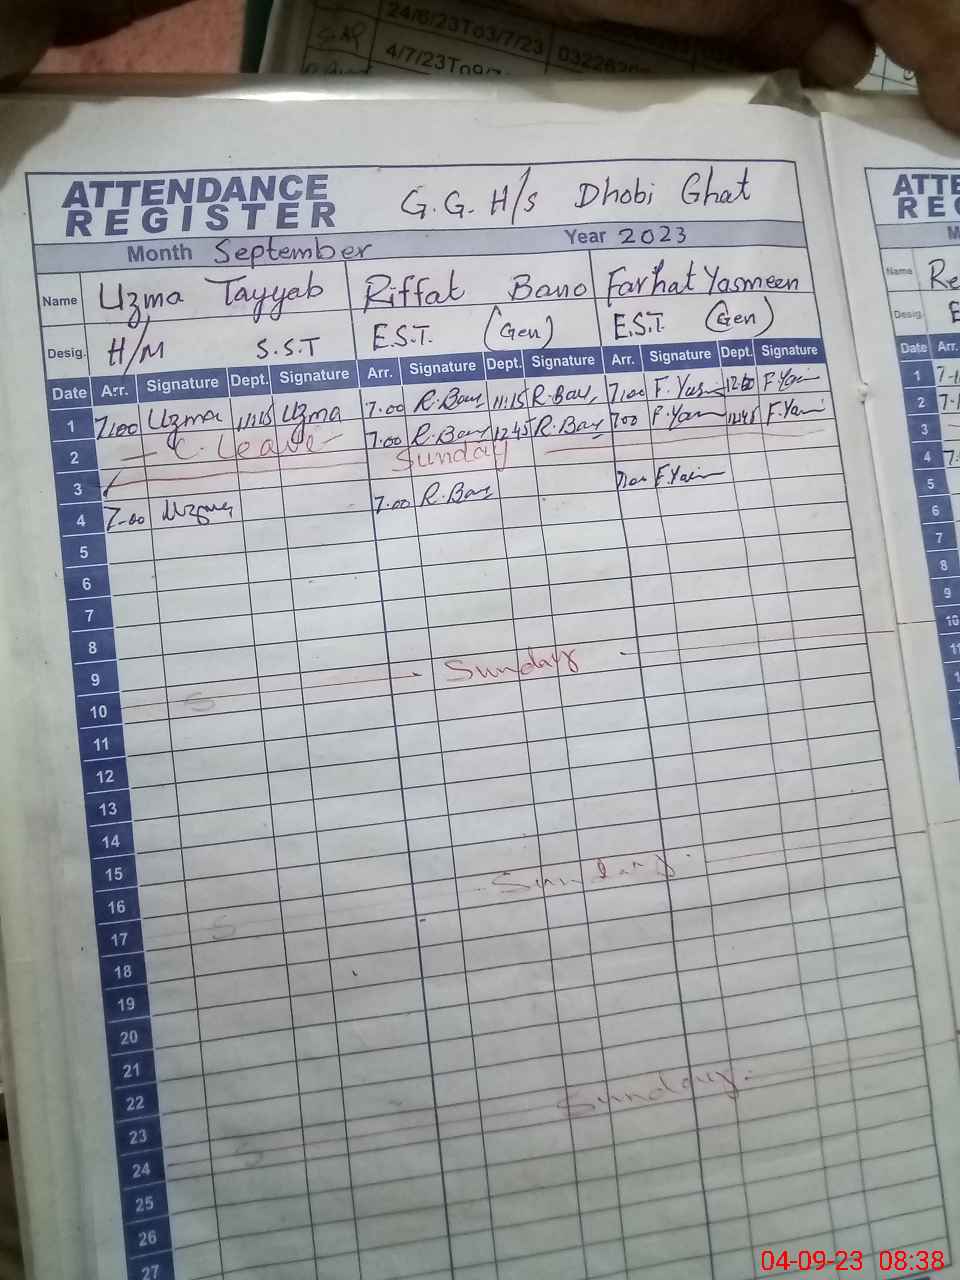 24/6/23To3/7/23
4/7/23To09/7
ATTENDANCE
REGISTER
G.G. H/s Dhobi Ghat
ATTE
RE
Month September Year 2023
M
Name Uzma Tayyab Riffat Bano Farhat Yasmeen
Name Re
Desig. H/M S.S.T E.S.T. (Gen) E.S.T. (Gen)
Desig. E
Date Arr. Signature Dept. Signature Arr. Signature Dept. Signature Arr. Signature Dept. Signature
Date Arr.
1 7.00 Uzma 11:15 Uzma 7.00 R.Bano 11:15 R.Bano 7.00 F.Yasmin 12:00 F.Yasmin
2 C. Leave 7.00 R.Bano 12:45 R.Bano 7.00 F.Yasmin 12:45 F.Yasmin
3 Sunday
4 7.00 Uzma 7.00 R.Bano 7.00 F.Yasmin
5
6
7
8
9
10 S Sunday
11
12
13
14
15
16
17 S Sunday
18
19
20
21
22
23
24 S Sunday.
25
26
27
1 7-
2 7-
3
4 7.
5
6
7
8
9
10
11
04-09-23 08:38